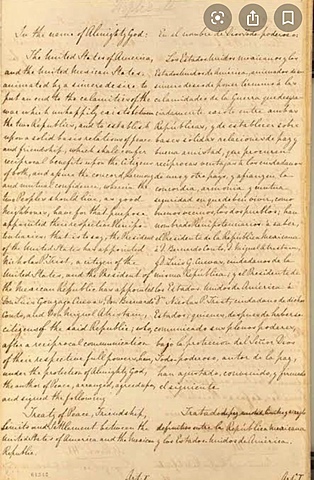 In the name of Almighty God:
The United States of America,
and the United Mexican States,
animated by a sincere desire to
put an end to the calamities of the
war which unhappily exists between
the two Republics, and to establish
upon a solid basis relations of peace
and friendship, which shall confer
reciprocal benefits upon the citizens
of both, and assure the concord, harmony
and mutual confidence, wherein the
two Peoples should live, as good
Neighbours, have for that purpose
appointed their respective Plenipo-
tentiaries: that is to say, the President
of the United States has appointed
Nicholas P. Trist, a citizen of the
United States, and the President of
the Mexican Republic has appointed
Don Luis Gonzaga Cuevas, Don Bernardo
Couto, and Don Miguel Atristain,
citizens of the said Republic; who,
after a reciprocal communication
of their respective full powers, have,
under the protection of Almighty God,
the author of Peace, arranged, agreed upon,
and signed the following
Treaty of Peace, Friendship,
Limits and Settlement between the
United States of America and the Mexican
Republic.
En el nombre de Dios Todopoderoso:
Los Estados Unidos mexicanos y los
Estados Unidos de América, animados de un
sincero deseo de poner término á las
calamidades de la Guerra que desgra-
ciadamente existe entre ambas
Repúblicas, y de establecer sobre
bases sólidas relaciones de paz y
buena amistad, que procuren
recíprocas ventajas á los ciudadanos
de uno y otro pays, y afianzen la
concordia, armonía y mutua
seguridad en que deben vivir, como
buenos vecinos, los dos pueblos, han
nombrado á
Presidente de la República mexicana
á D. Bernardo Couto, D. Miguel Atristain,
y D. Luis G. Cuevas, ciudadanos de la
misma República; y el Presidente de
los Estados Unidos de América á
D. Nicolas P. Trist, ciudadano de dichos
Estados; quienes, después de haberse
comunicado sus plenos poderes,
bajo la protección del Señor Dios
Todopoderoso, autor de la paz,
han ajustado, convenido, y firmado
el siguiente
Tratado de paz, amistad, límites y arreglo
definitivo entre la República mexicana
y los Estados Unidos de América.